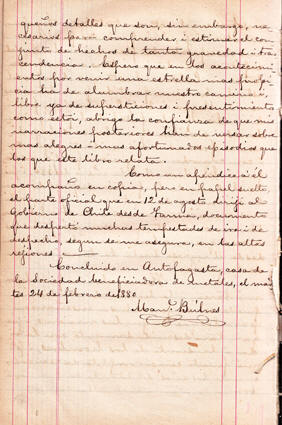 queños detalles que son, sin embargo, ne-
cesarios para comprender i estimar el con-
junto de hechos de tanta gravedad i tras-
cendencia. Espero que en los acontecimi-
entos por venir una estrella mas propi-
cia ha de alumbrar nuestro camino i
libre ya de supersticiones i presentimientos
como estoi, abrigo la confianza de que mis
narraciones posteriores han de versar sobre
mas alegres i mas afortunados episodios que
los que este libro relata.
Como un apéndice a él
acompaño en copia, pero en papel suelto,
el parte oficial que en 12 de agosto dirijí al
Gobierno de Chile desde documento
que despertó muchas tempestades de ira i de
despecho, segun se me asegura, en las altas
rejiones.
Concluido en Antofagasta, casa de
la Sociedad beneficiadora de metales, el mar-
tes 24 de febrero de 1880.
Man. Búlnes